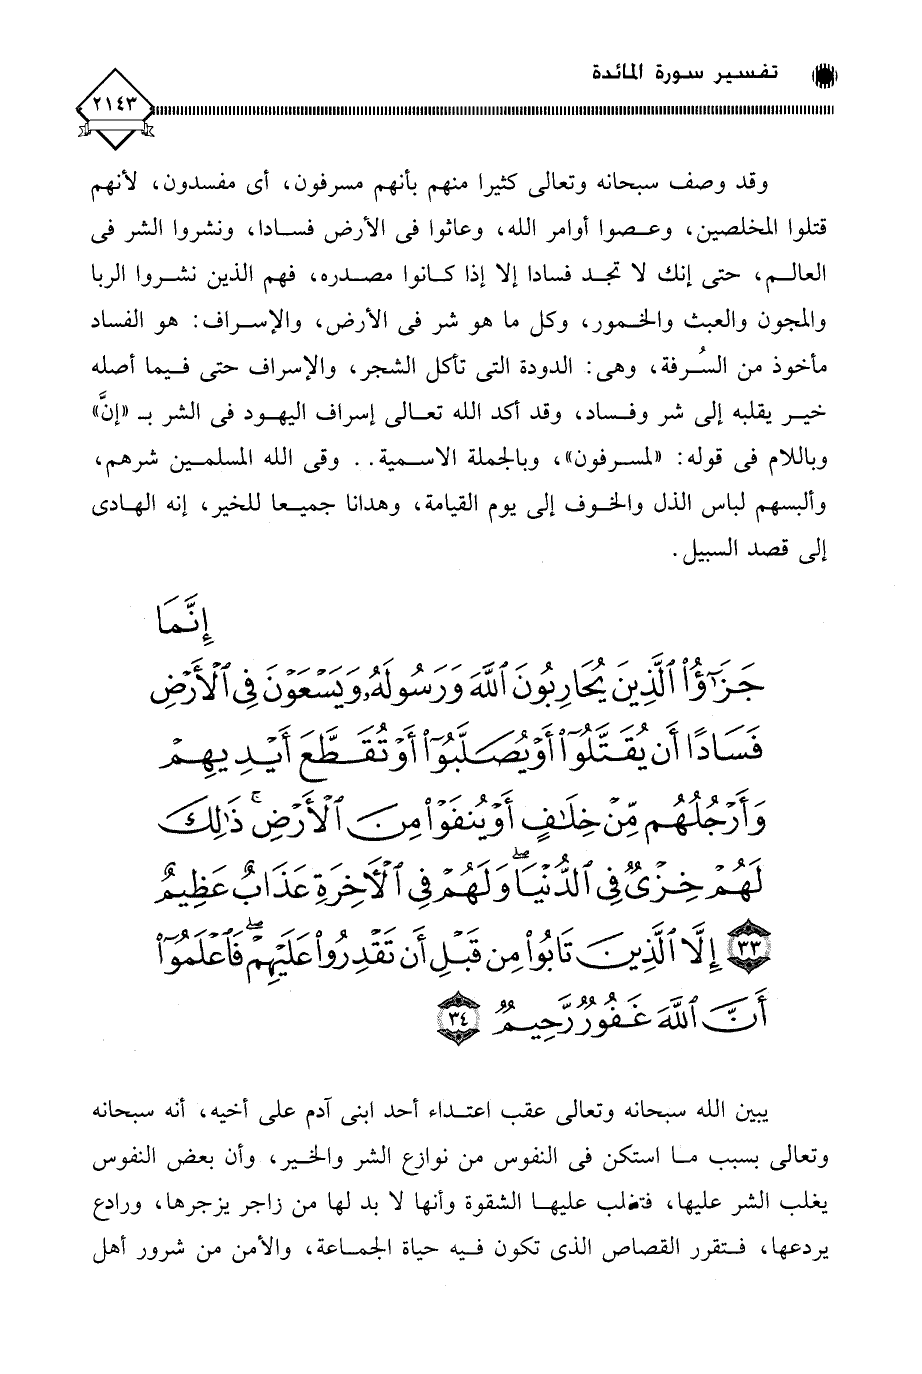 تفسير سورة المائدة
٢١٤٣
وقد وصف سبحانه وتعالى كثيرا منهم بأنهم مسرفون، أى مفسدون، لأنهم
قتلوا المخلصين، وعصوا أوامر الله، وعاثوا فى الأرض فسادا، ونشروا الشر فى
العالم، حتى إنك لا تجد فسادا إلا إذا كانوا مصدره، فهم الذين نشروا الربا
والمجون والعبث والخمور، وكل ما هو شر فى الأرض، والإسراف: هو الفساد
مأخوذ من السُرفة، وهى: الدودة التى تأكل الشجر، والإسراف حتى فيما أصله
خير يقلبه إلى شر وفساد، وقد أكد الله تعالى إسراف اليهود فى الشر بـ «إنَّ»
وباللام فى قوله: «لمسرفون»، وبالجملة الاسمية.. وقى الله المسلمين شرهم،
وألبسهم لباس الذل والخوف إلى يوم القيامة، وهدانا جميعا للخير، إنه الهادى
إلى قصد السبيل.
إِنَّمَا
جَزَٰٓؤُا۟ ٱلَّذِينَ يُحَارِبُونَ ٱللَّهَ وَرَسُولَهُۥ وَيَسْعَوْنَ فِى ٱلْأَرْضِ
فَسَادًا أَن يُقَتَّلُوٓا۟ أَوْ يُصَلَّبُوٓا۟ أَوْ تُقَطَّعَ أَيْدِيهِمْ
وَأَرْجُلُهُم مِّنْ خِلَٰفٍ أَوْ يُنفَوْا۟ مِنَ ٱلْأَرْضِ ۚ ذَٰلِكَ
لَهُمْ خِزْىٌ فِى ٱلدُّنْيَا ۖ وَلَهُمْ فِى ٱلْأَخِرَةِ عَذَابٌ عَظِيمٌ
٣٣ إِلَّا ٱلَّذِينَ تَابُوا۟ مِن قَبْلِ أَن تَقْدِرُوا۟ عَلَيْهِمْ ۖ فَٱعْلَمُوٓا۟
أَنَّ ٱللَّهَ غَفُورٌ رَّحِيمٌ ٣٤
يبين الله سبحانه وتعالى عقب اعتداء أحد ابنى آدم على أخيه، أنه سبحانه
وتعالى بسبب ما استكن فى النفوس من نوازع الشر والخير، وأن بعض النفوس
يغلب الشر عليها، فتغلب عليها الشقوة وأنها لا بد لها من زاجر يزجرها، ورادع
يردعها، فتقرر القصاص الذى تكون فيه حياة الجماعة، والأمن من شرور أهل